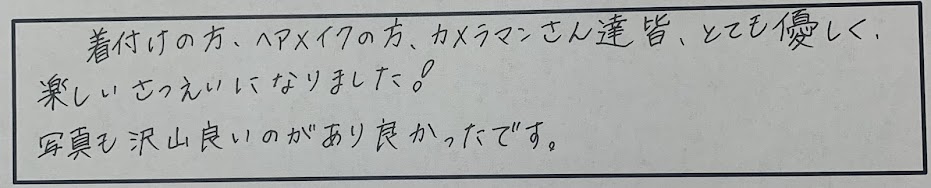 着付けの方、ヘアメイクの方、カメラマンさん達皆、とても優しく、
楽しいさつえいになりました!
写真も沢山良いのがあり良かったです。